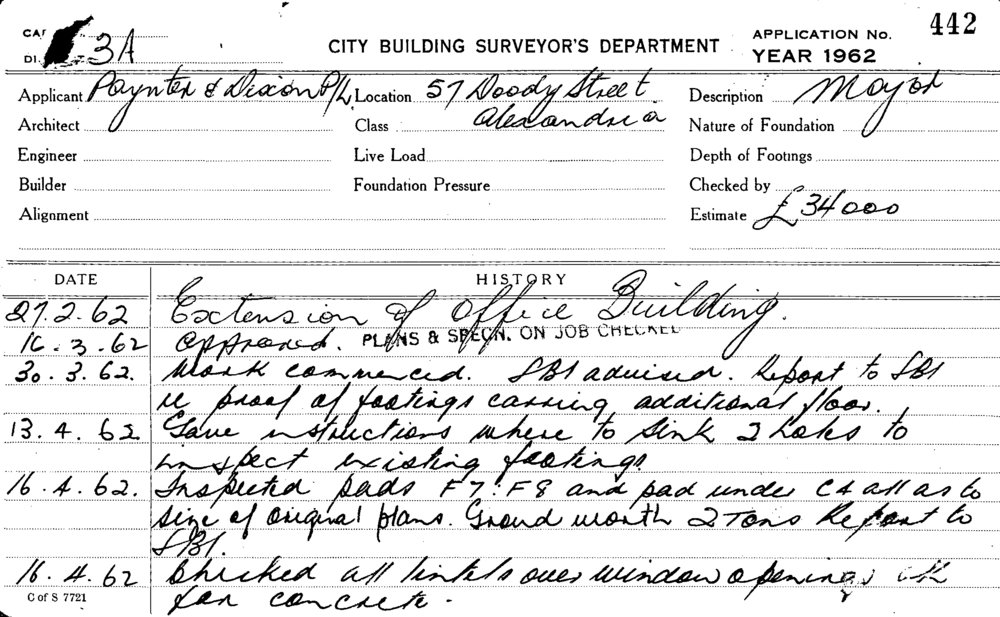 CITY BUILDING SURVEYOR'S DEPARTMENT
APPLICATION No. 442
YEAR 1962
DI. 3A
Applicant Paynter & Dixon P/L Location 57 Doody Street Description Mayor
Architect Class Alexandria Nature of Foundation
Engineer Live Load Depth of Footings
Builder Foundation Pressure Checked by
Alignment Estimate £34000
DATE HISTORY
27.2.62 Extension of Office Building.
16.3.62 approved. PLANS & SPECN. ON JOB CHECKED
30.3.62. Work commenced. SBI advised. Report to SBI
re proof of footings carring additional floor.
13.4.62 Gave instructions where to sink 2 holes to
inspect existing footings
16.4.62. Inspected pads F7. F8 and pad under C4 all as to
size of original plans. Ground worth 2 Tons Report to
SBI.
16.4.62 Checked all lintels over window openings OK
for concrete.
C of S 7721